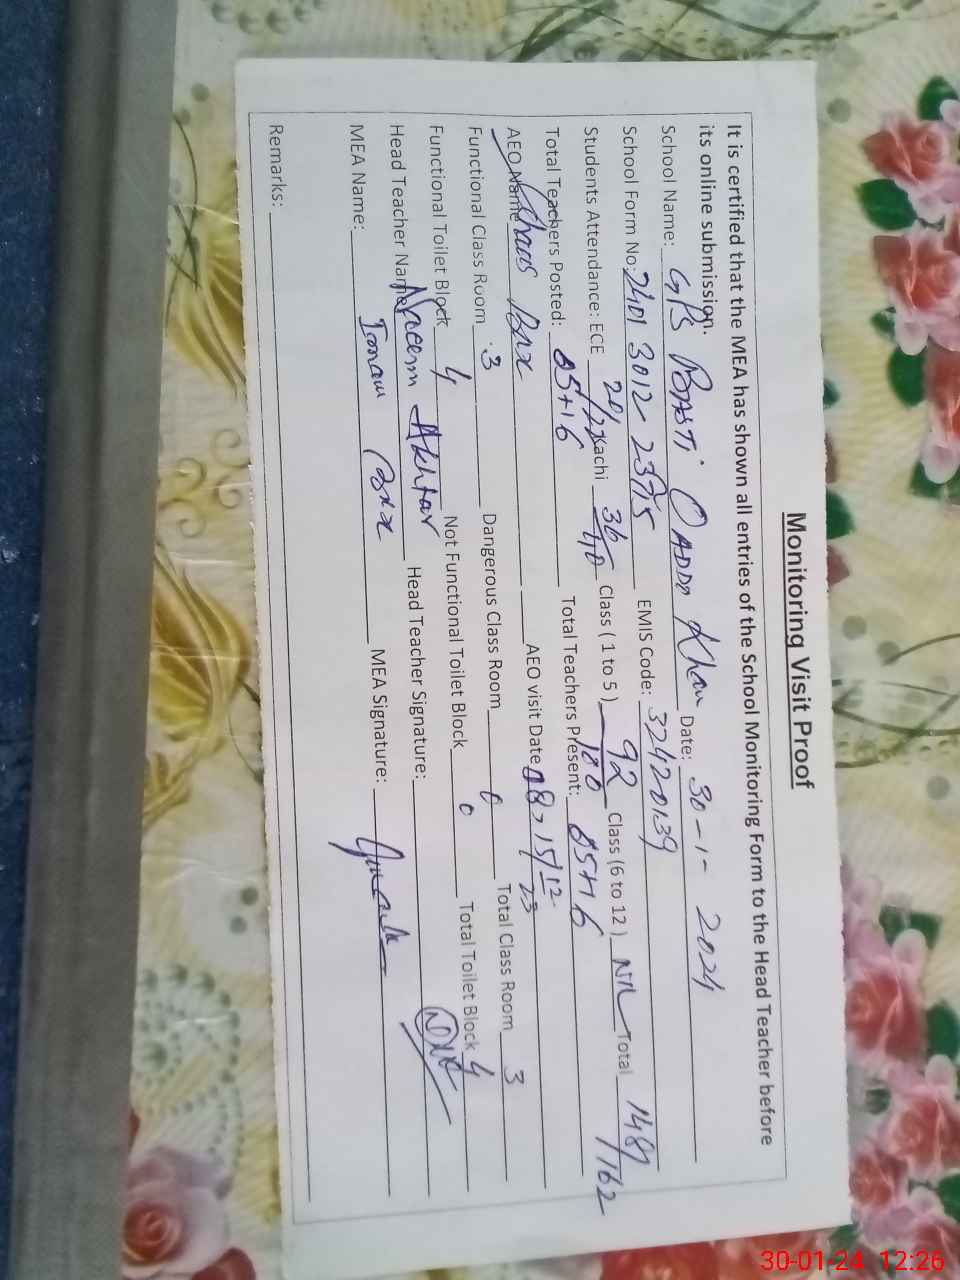 Monitoring Visit Proof
It is certified that the MEA has shown all entries of the School Monitoring Form to the Head Teacher before
its online submission.
School Name: GPS BASTI QADDR Khan Date: 30-1-2024
School Form No: 2401 3012 EMIS Code: 32420139
Students Attendance: ECE 20/22 Kachi 36/40 Class ( 1 to 5 ) 92/100 Class (6 to 12 ) NIL Total 148/162
Total Teachers Posted: 05+16 Total Teachers Present: 05+16
AEO Name AEO visit Date 08, 15/12-23
Functional Class Room 3 Dangerous Class Room 0 Total Class Room 3
Functional Toilet Block 4 Not Functional Toilet Block 0 Total Toilet Block 4
Head Teacher Name Naeem Akhtar Head Teacher Signature:
MEA Name: Imran MEA Signature:
Remarks:
30-01-24 12:26